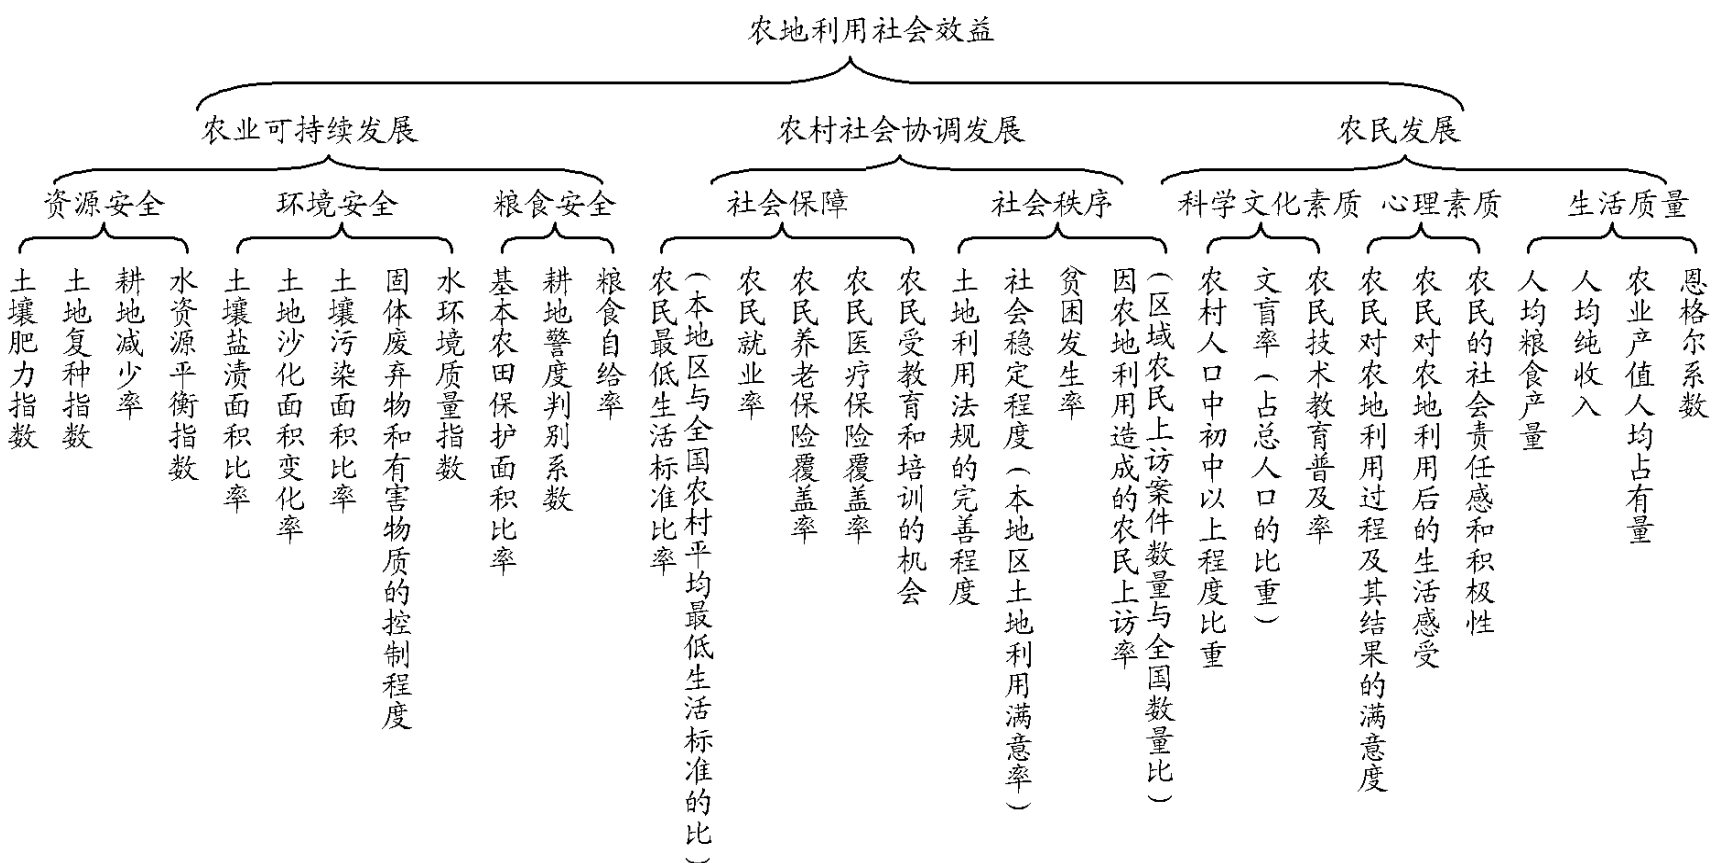 农地利用社会效益
农业可持续发展
农村社会协调发展
农民发展
资源安全
环境安全
粮食安全
社会保障
社会秩序
科学文化素质
心理素质
生活质量
土壤肥力指数
土地复种指数
耕地减少率
水资源平衡指数
土壤盐渍面积比率
土地沙化面积变化率
土壤污染面积比率
固体废弃物和有害物质的控制程度
水环境质量指数
基本农田保护面积比率
耕地警度判别系数
粮食自给率
农民最低生活标准比率
(本地区与全国农村平均最低生活标准的比)
农民就业率
农民养老保险覆盖率
农民医疗保险覆盖率
农民受教育和培训的机会
土地利用法规的完善程度
社会稳定程度(本地区土地利用满意率)
贫困发生率
因农地利用造成的农民上访率
(区域农民上访案件数量与全国数量比)
农村人口中初中以上程度比重
文盲率(占总人口的比重)
农民技术教育普及率
农民对农地利用过程及其结果的满意度
农民对农地利用后的生活感受
农民的社会责任感和积极性
人均粮食产量
人均纯收入
农业产值人均占有量
恩格尔系数